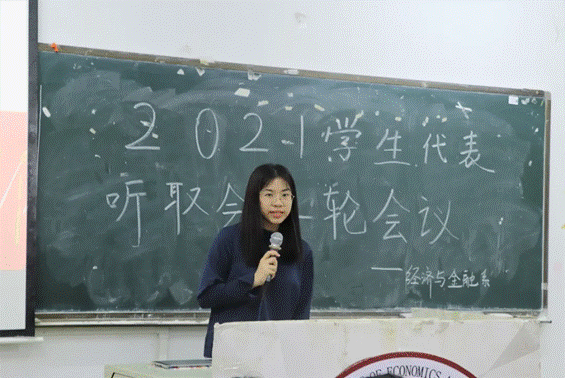 2021学生代表
听取会 轮会议
—经济与金融系
OF ECONOMICS